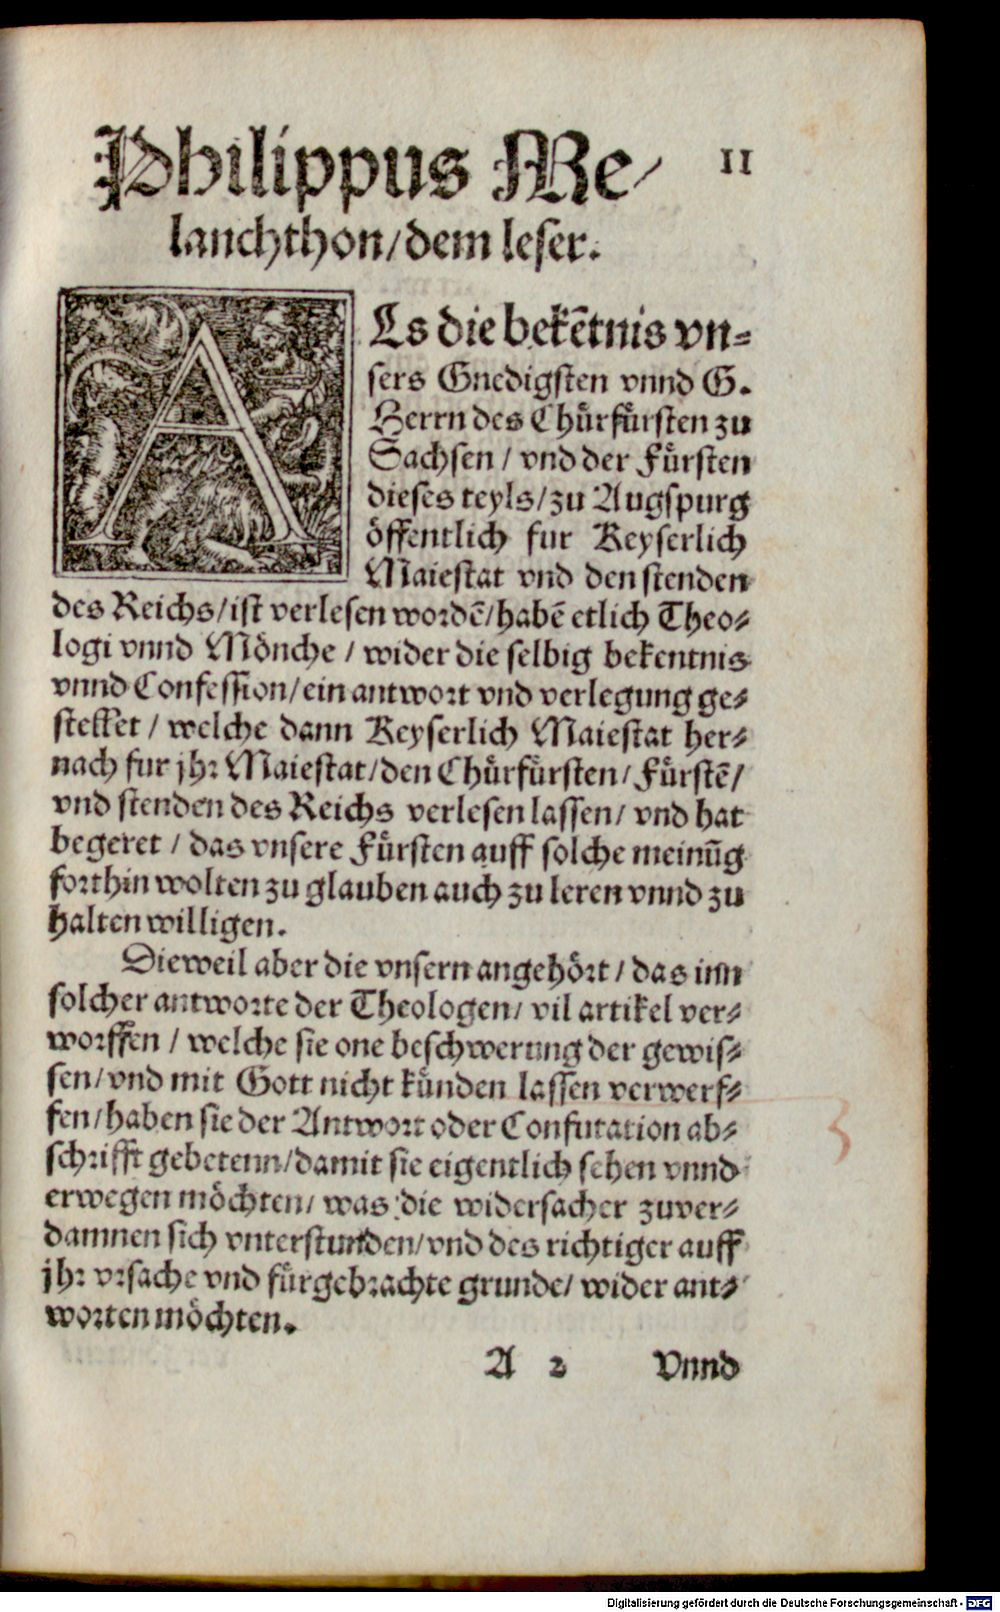 Philippus Me⸗ II
lanchthon/ dem leser.
ALs die bekẽtnis vn⸗
sers Gnedigsten vnnd G.
Herrn des Chuͤrfuͤrsten zu
Sachsen / vnd der Fuͤrsten
dieses teyls/ zu Augspurg
oͤffentlich fur Keyserlich
Maiestat vnd den stenden
des Reichs/ ist verlesen wordẽ/ habẽ etlich Theo⸗
logi vnnd Moͤnche / wider die selbig bekentnis
vnnd Confession/ ein antwort vnd verlegung ge⸗
stellet / welche dann Keyserlich Maiestat her⸗
nach fur jhr Maiestat/ den Chuͤrfuͤrsten/ Fuͤrstẽ/
vnd stenden des Reichs verlesen lassen/ vnd hat
begeret / das vnsere Fuͤrsten auff solche meinũg
forthin wolten zu glauben auch zu leren vnnd zu
halten willigen.
Dieweil aber die vnsern angehoͤrt / das inn
solcher antworte der Theologen/ vil artikel ver⸗
worffen / welche sie one beschwerung der gewis⸗
sen/ vnd mit Gott nicht kuͤnden lassen verwerf⸗
fen/ haben sie der Antwort oder Confutation ab⸗
schrifft gebetenn/ damit sie eigentlich sehen vnnd
erwegen moͤchten/ was die widersacher zuver⸗
damnen sich vnterstunden/ vnd des richtiger auff
jhr vrsache vnd fuͤrgebrachte grunde/ wider ant⸗
worten moͤchten.
A 2 Vnnd
Digitalisierung gefördert durch die Deutsche Forschungsgemeinschaft - DFG